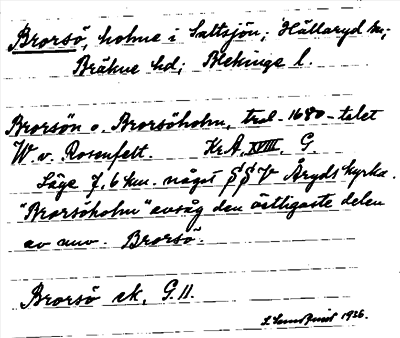 Brorsö, holme i Saltsjön; Hällaryd sn;
Bräkne hd; Blekinge l.
Brorsön o. Brorsöholm, trol. 1680-talet
W. v. Rosenfelt. KrA, XVIII, G.
Läge 7,6 km. något SSV Åryds kyrka.
"Brorsöholm" avsåg den östligaste delen
av nuv. Brorsö.
Brorsö ek. G. 11.
1936.